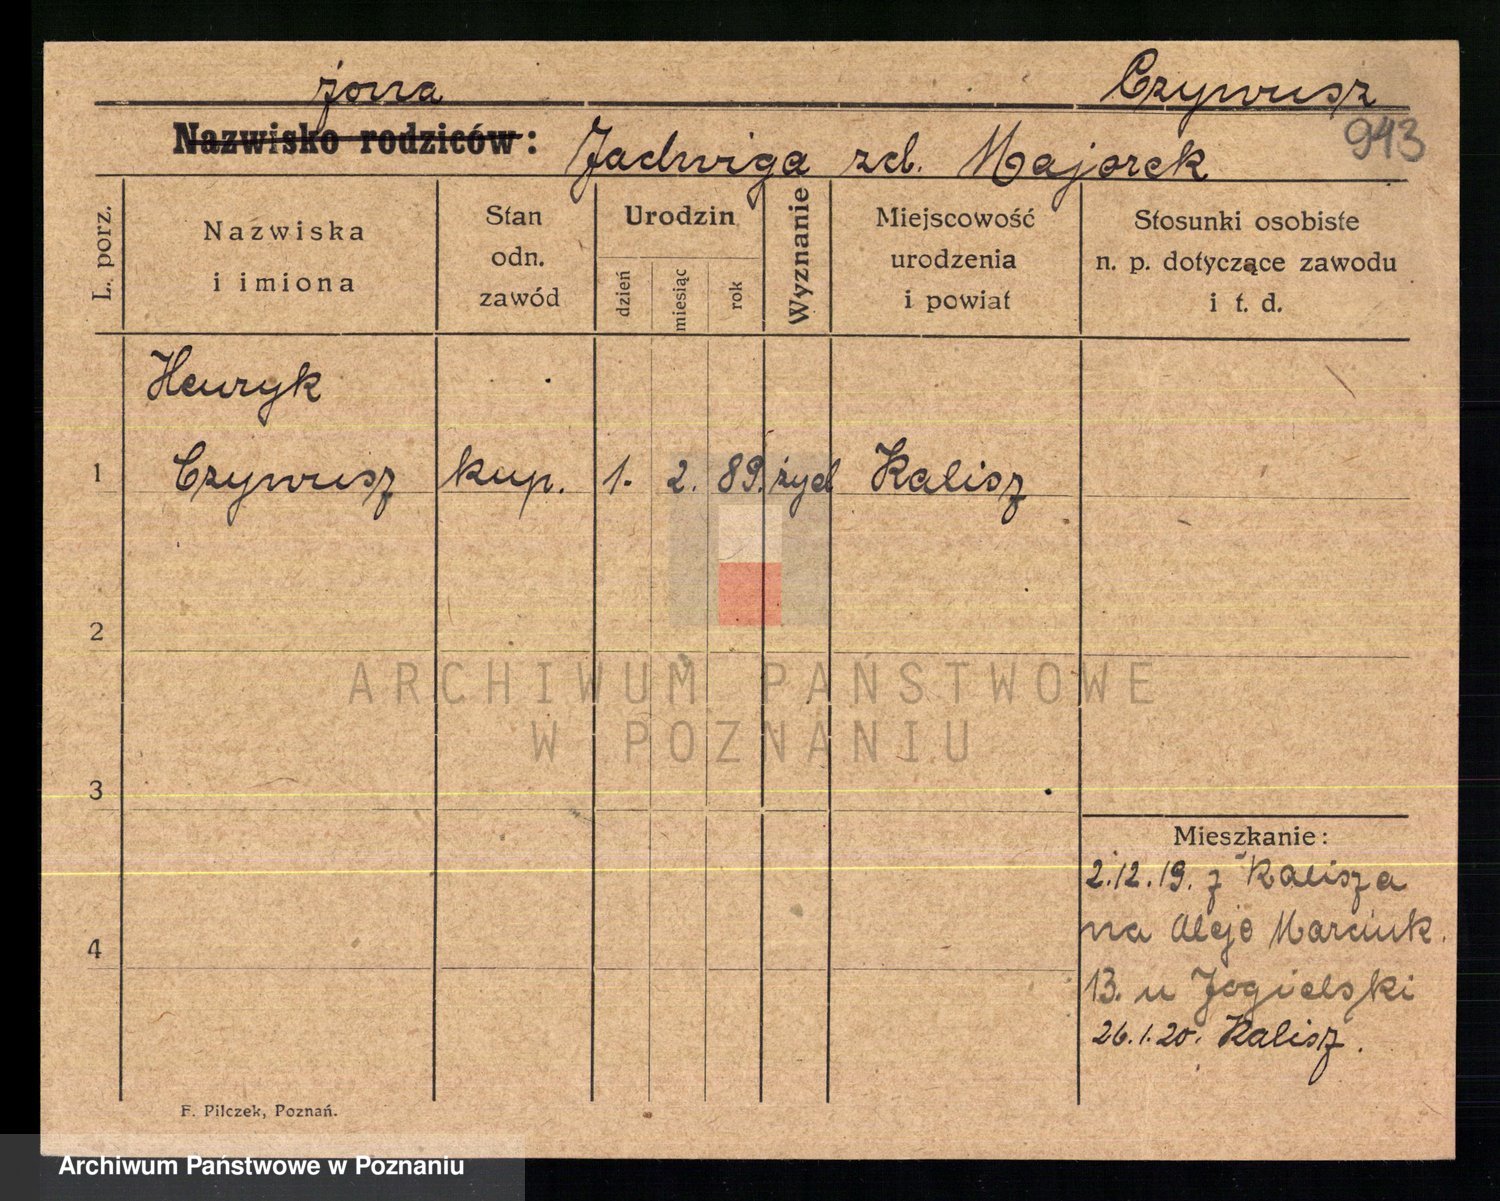 żona Czywusz
Nazwisko rodziców: Jadwiga zd. Majorek
943
L. porz.
Nazwiska
i imiona
Stan
odn.
zawód
Urodzin
dzień
miesiąc
rok
Wyznanie
Miejscowość
urodzenia
i powiat
Stosunki osobiste
n. p. dotyczące zawodu
i t. d.
Henryk
1 Czywusz kup. 1. 2. 89. żyd Kalisz
2
ARCHIWUM PAŃSTWOWE
W POZNANIU
3
Mieszkanie:
2.12.19. z Kalisza
na Aleje Marcink.
4
13. u Jagielski
26.1.20. Kalisz.
F. Pilczek, Poznań.
Archiwum Państwowe w Poznaniu